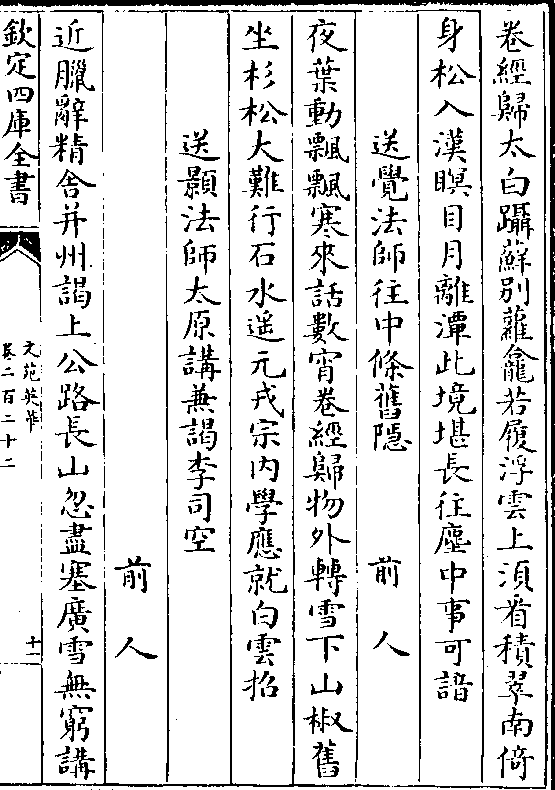 卷經歸太白躡蘚别蘿龕若履浮雲上須看積翠南倚
身松入漢瞑目月離潭此境堪長往塵中事可諳
送覺法師往中條舊隱
前人
夜葉動飄飄寒來話數宵卷經歸物外轉雪下山椒舊
坐杉松大難行石水遥元戎宗内學應就白雲招
送顥法師太原講兼謁李司空
前人
近臘辭精舍并州謁上公路長山忽盡塞廣雪無窮講
欽定四庫全書
文苑英華
卷二百二十二
十一